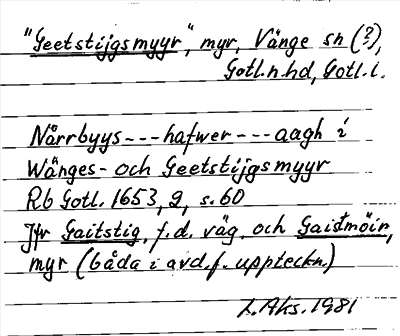 "Geetstijgsmyyr", myr, Vänge sn (?),
Gotl. n. hd, Gotl. l.
Nårrbyys --- hafwer --- aagh i
Wänges- och Geetstijgsmyyr
Rb Gotl. 1653, 2, s. 60
Jfr Gaitstig, f.d. väg, och Gaistmöir,
myr (båda i avd. f. uppteckn.)
L. Aks. 1981